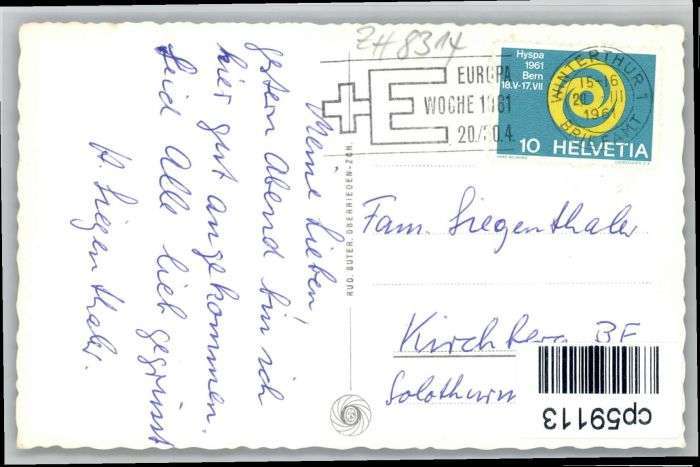 ZH 8314
Meine Lieben,
gestern Abend bin ich
hier gut angekommen.
Seid Alle lieb gegrüsst
H. Siegenthaler.
RUD. SUTER, OBERRIEDEN-ZCH.
EUROPA
WOCHE 1961
20/30.4.
Hyspa
1961
Bern
18.V-17.VII
10 HELVETIA
WINTERTHUR 1
15-16
1961
BRIEFAMT
Fam. Siegenthaler
Kirchberg BE
Solothurn
cp59113